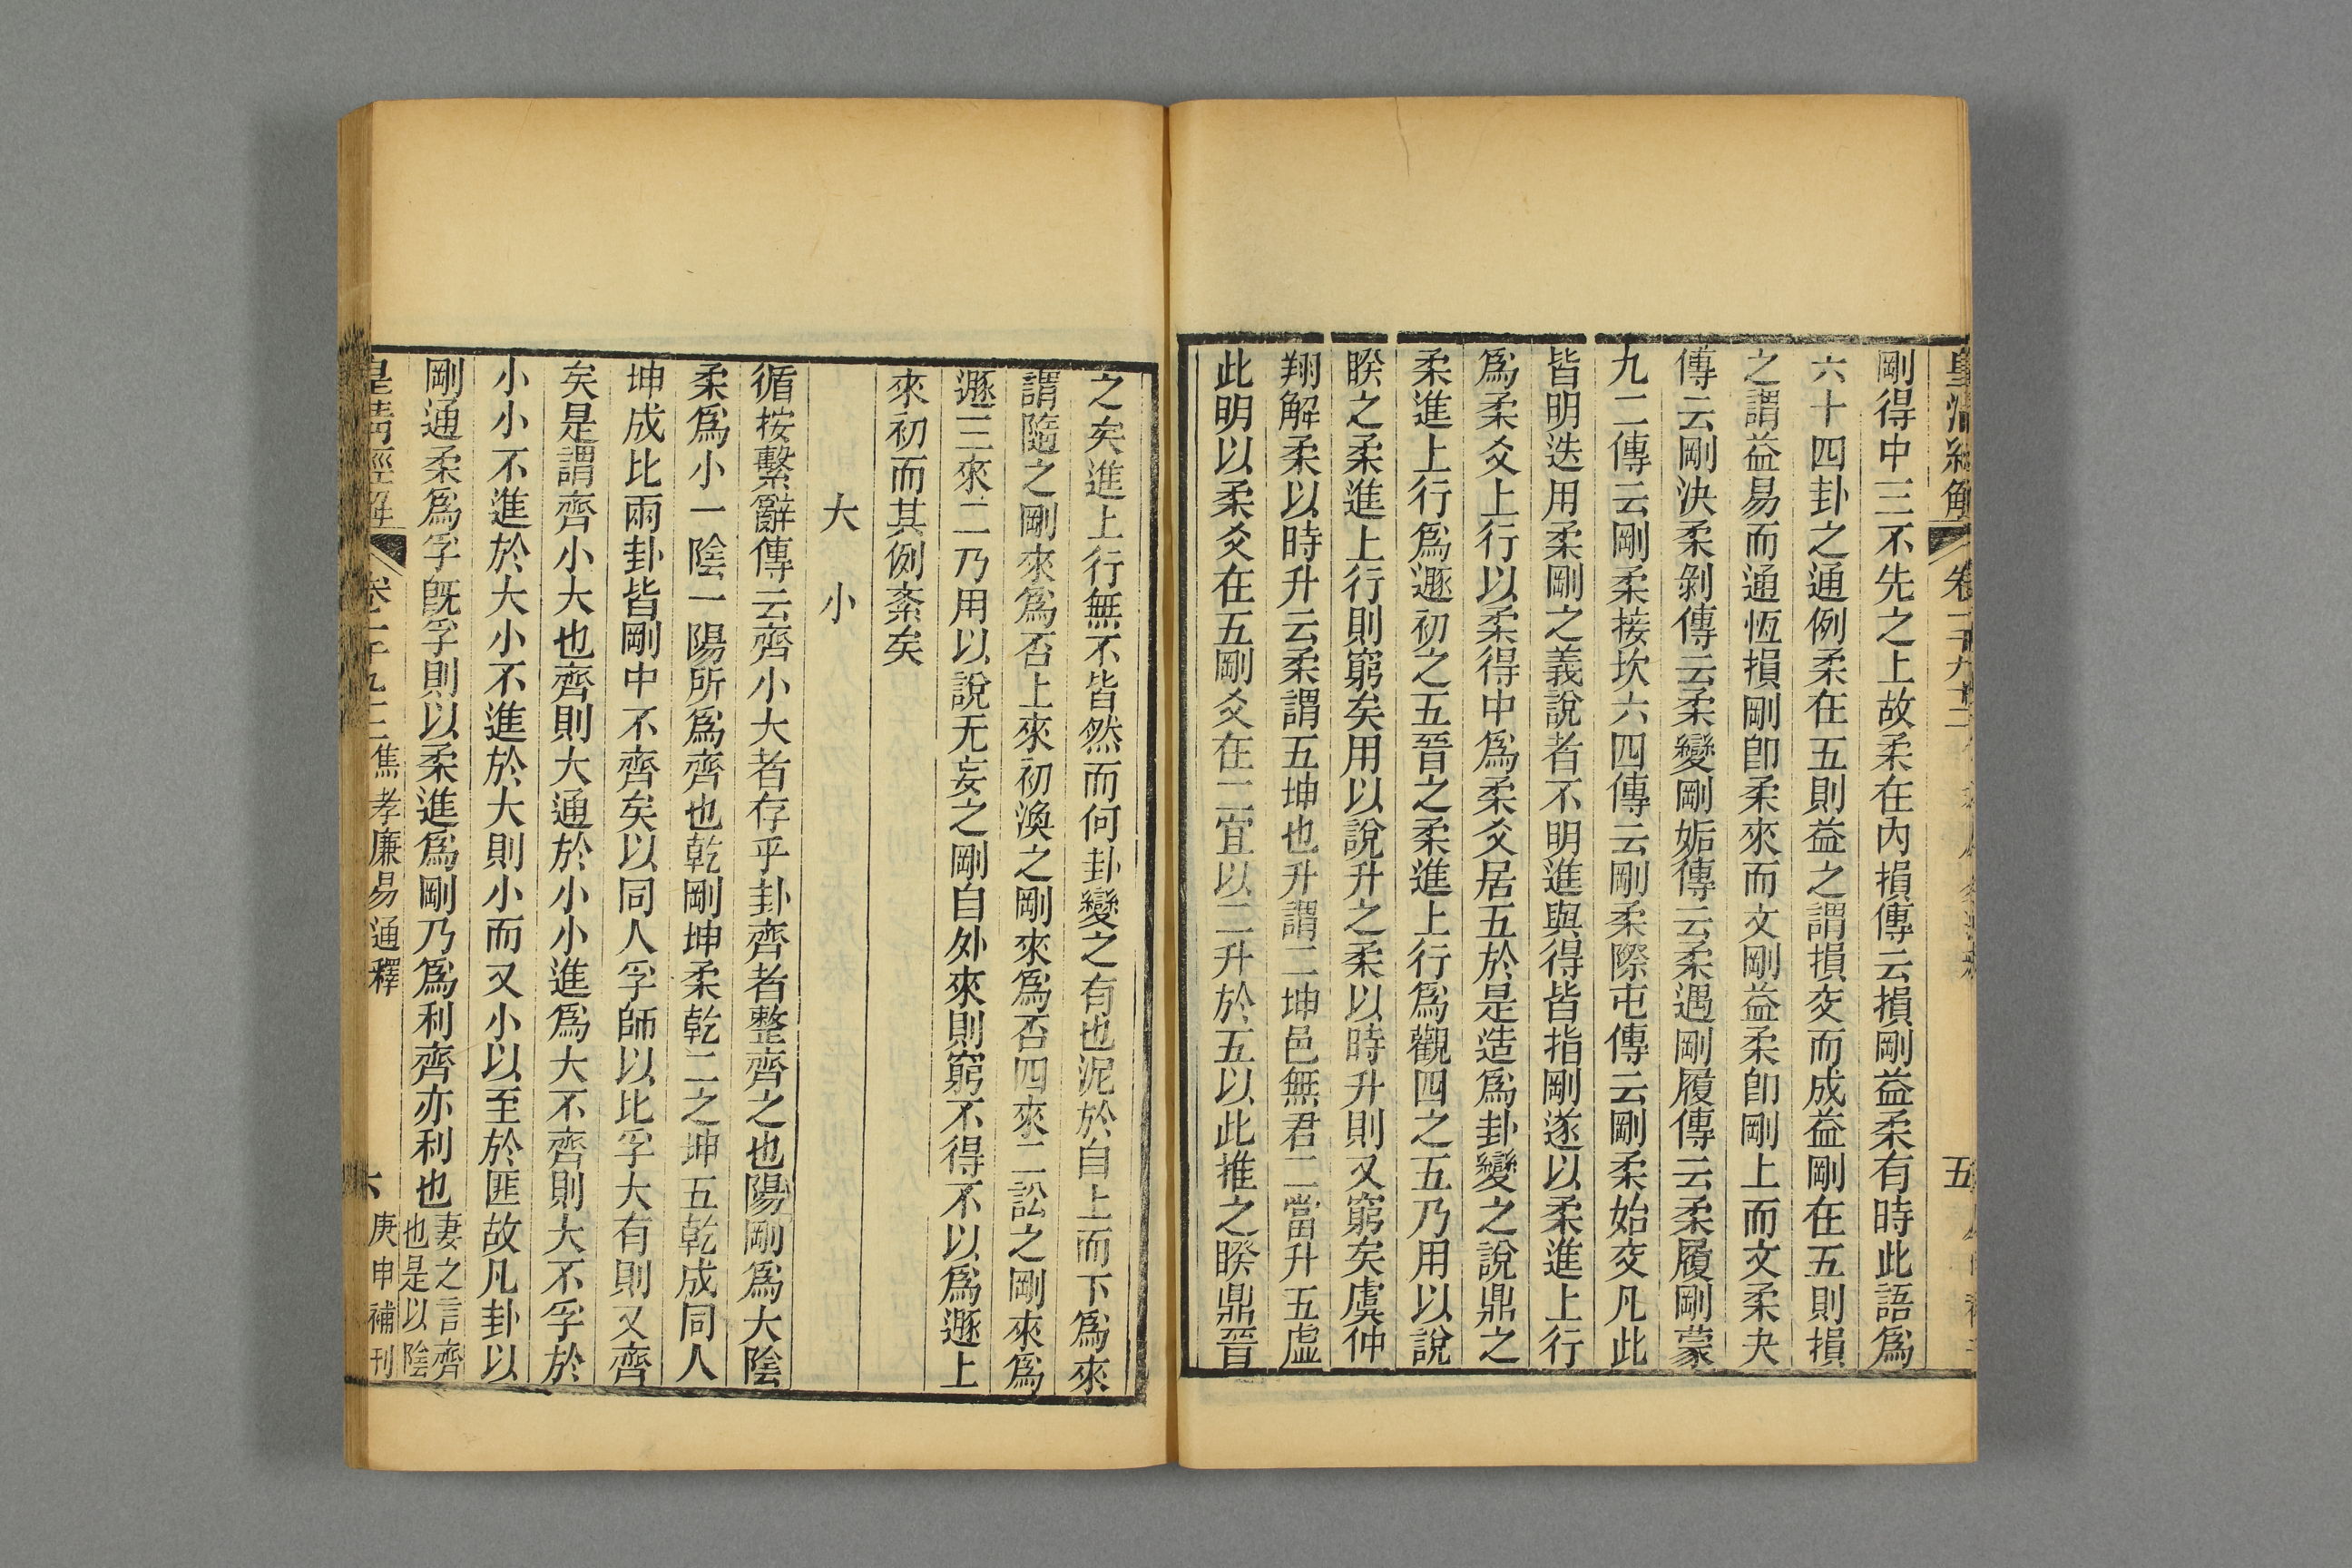 皇清經解
五
剛得中三不先之上故柔在內損傳云損剛益柔有時此語爲
六十四卦之通例柔在五則益之謂損交而成益剛在五則損
之謂益易而通恆損剛卽柔來而文剛益柔卽剛上而文柔夬
傳云剛決柔剝傳云柔變剛姤傳云柔遇剛履傳云柔履剛蒙
九二傳云剛柔接坎六四傳云剛柔際屯傳云剛柔始交凡此
皆明迭用柔剛之義說者不明進與得皆指剛遂以柔進上行
爲柔爻上行以柔得中爲柔爻居五於是造爲卦變之說鼎之
柔進上行爲遯初之五晉之柔進上行爲觀四之五乃用以說
睽之柔進上行則窮矣用以說升之柔以時升則又窮矣虞仲
翔解柔以時升云柔謂五坤也升謂二坤邑無君二當升五虛
此明以柔爻在五剛爻在二宜以二升於五以此推之睽鼎晉
之矣進上行無不皆然而何卦變之有也泥於自上而下爲來
謂隨之剛來爲否上來初渙之剛來爲否四來二訟之剛來爲
遯三來二乃用以說无妄之剛自外來則窮不得不以爲遯上
來初而其例紊矣
大小
循按繫辭傳云齊小大者存乎卦齊者整齊之也陽剛爲大陰
柔爲小一陰一陽所爲齊也乾剛坤柔乾二之坤五乾成同人
坤成比兩卦皆剛中不齊矣以同人孚師以比孚大有則又齊
矣是謂齊小大也齊則大通於小小進爲大不齊則大不孚於
小小不進於大小不進於大則小而又小以至於匪故凡卦以
剛通柔爲孚旣孚則以柔進爲剛乃爲利齊亦利也
妻之言齊
也是以陰
皇清經解
焦孝廉易通釋
六
庚申補刊